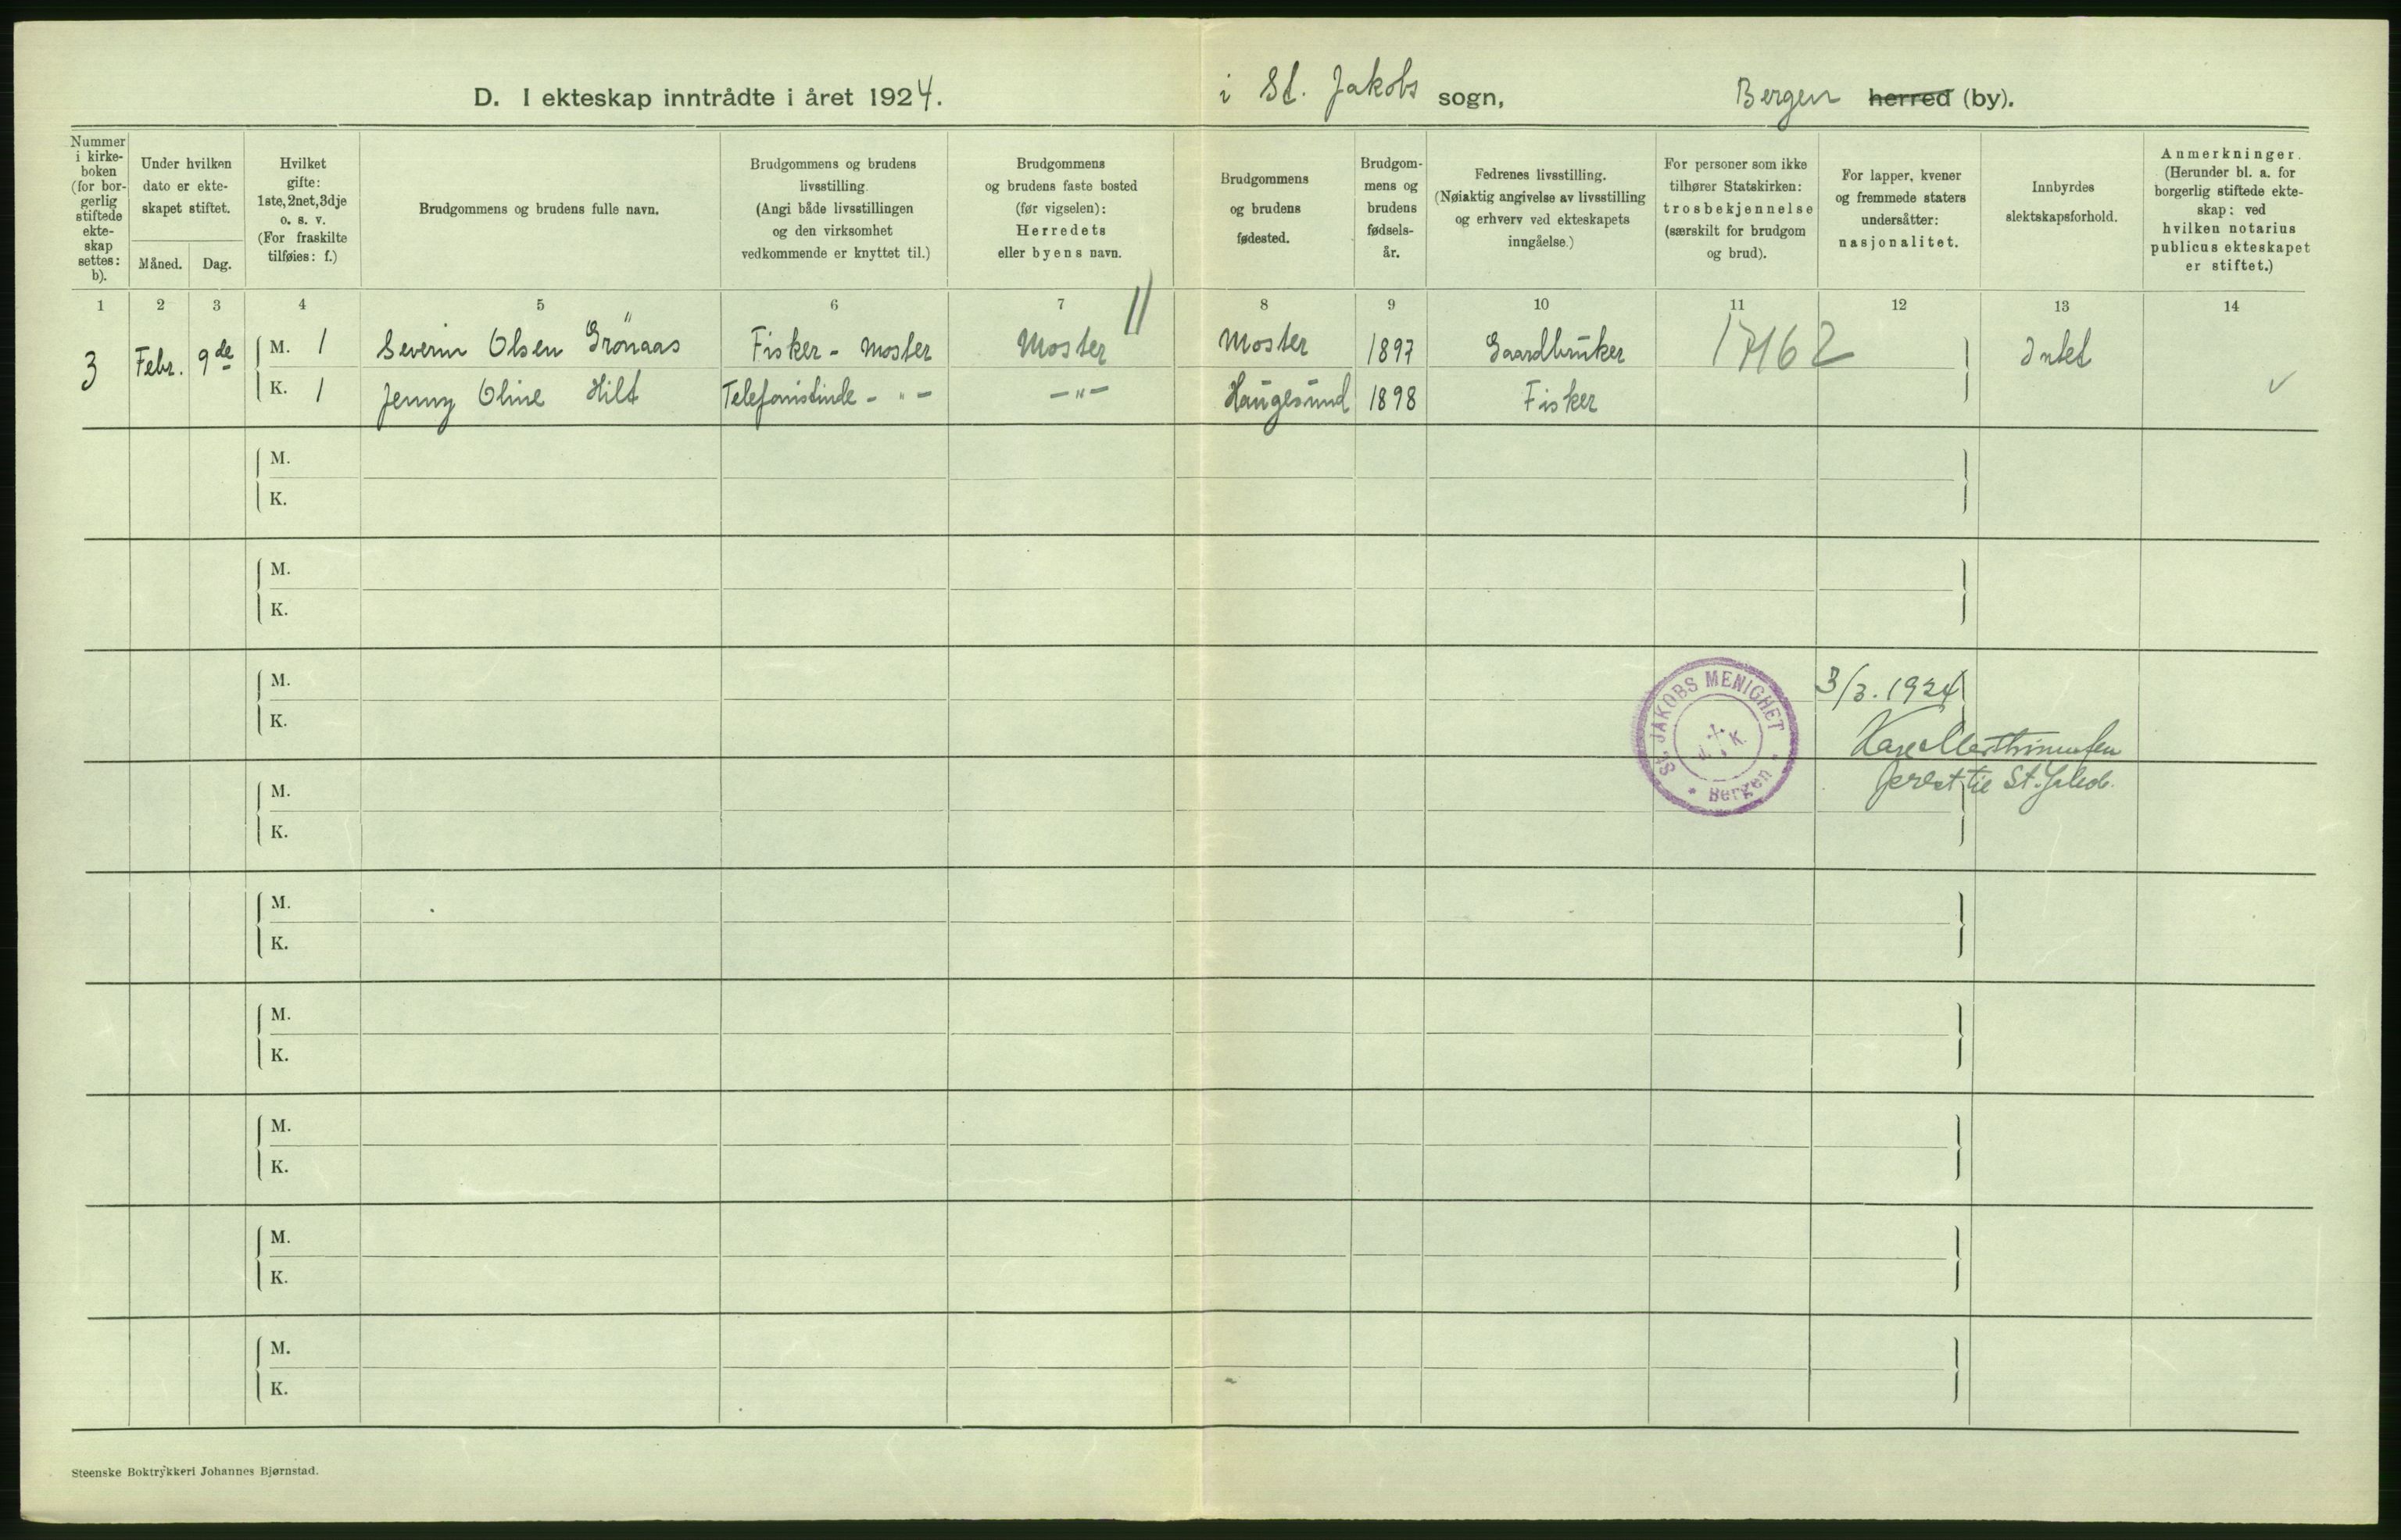 D. I ekteskap inntrådte i året 1924. i St. Jakobs sogn, Bergen herred (by).
Nummer
i kirke-
boken
(for bor-
gerlig
stiftede
ekte-
skap
settes:
b).
Under hvilken
dato er ekte-
skapet stiftet.
Måned. Dag.
Hvilket
gifte:
1ste, 2net, 3dje
o. s. v.
(For fraskilte
tilføies: f.)
Brudgommens og brudens fulle navn.
Brudgommens og brudens
livsstilling.
(Angi både livsstillingen
og den virksomhet
vedkommende er knyttet til.)
Brudgommens
og brudens faste bosted
(før vigselen):
Herredets
eller byens navn.
Brudgommens
og brudens
fødested.
Brudgom-
mens og
brudens
fødsels-
år.
Fedrenes livsstilling.
(Nøiaktig angivelse av livsstilling
og erhverv ved ekteskapets
inngåelse.)
For personer som ikke
tilhører Statskirken:
trosbekjennelse
(særskilt for brudgom
og brud).
For lapper, kvener
og fremmede staters
undersåtter:
nasjonalitet.
Innbyrdes
slektskapsforhold.
Anmerkninger.
(Herunder bl. a. for
borgerlig stiftede ekte-
skap: ved
hvilken notarius
publicus ekteskapet
er stiftet.)
1 2 3 4 5 6 7 8 9 10 11 12 13 14
3 Febr. 9de M. 1 Severin Olsen Grönaas Fisker - Moster Moster Moster 1897 Gaardbruker 17162 Intet
K. 1 Jenny Oline Hilt Telefonistinde - " - - " - Haugesund 1898 Fisker
M.
K.
M.
K.
M.
K.
ST. JAKOBS MENIGHET
Bergen
3/3. 1924
St. Jakob.
M.
K.
M.
K.
M.
K.
M.
K.
M.
K.
M.
K.
Steenske Boktrykkeri Johannes Bjørnstad.